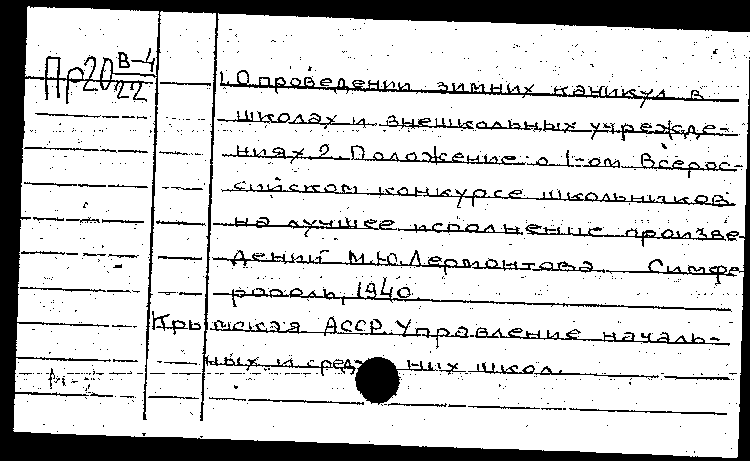 Пр20 В-4/22
1. О проведении зимних каникул в
школах и внешкольных учрежде-
ниях 2. Положение о 1-ом Всерос-
сийском конкурсе школьников
на лучшее исполнение произве-
дений М.Ю.Лермонтова. Симфе-
рополь, 1940.
Крымская АССР. Управление началь-
ных и средних школ.